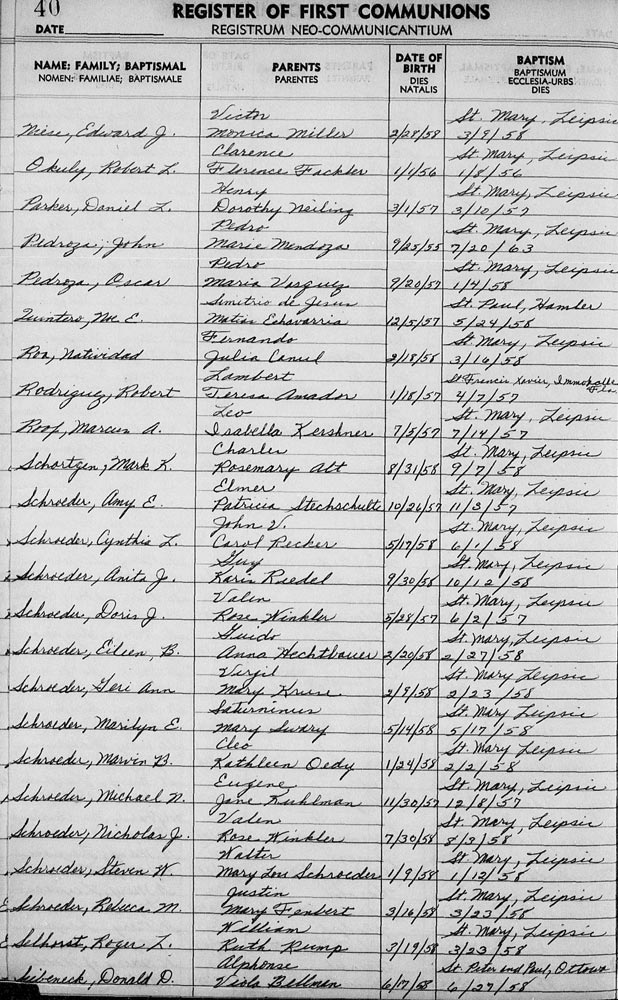 40 REGISTER OF FIRST COMMUNIONS
DATE REGISTRUM NEO-COMMUNICANTIUM
NAME: FAMILY; BAPTISMAL PARENTS DATE OF BIRTH BAPTISM
NOMEN: FAMILIAE; BAPTISMALE PARENTES DIES NATALIS BAPTISMUM ECCLESIA-URBS DIES
Victor St. Mary, Leipsic
Niese, Edward J. Monica Miller 2/28/58 3/9/58
Clarence St. Mary, Leipsic
Okuly, Robert L. Florence Fackler 1/1/56 1/8/56
Henry St. Mary, Leipsic
Parker, Daniel L. Dorothy Neiling 3/1/57 3/10/57
Pedro St. Mary, Leipsic
Pedroza, John Marie Mendoza 9/25/55 7/20/63
Pedro St. Mary, Leipsic
Pedroza, Oscar Maria Vasquez 9/20/57 1/4/58
Simitrio de Jesus St. Paul, Hamler
Quintero, Noe E. Matias Echavarria 12/5/57 5/24/58
Fernando St. Mary, Leipsic
Roa, Natividad Julia Canul 2/18/58 3/16/58
Lambert St Francis Xavier, Immokalle Fla.
Rodriguez, Robert Teresa Amador 1/18/57 4/7/57
Leo St. Mary, Leipsic
Roof, Marcus A. Isabella Kershner 7/5/57 7/14/57
Charles St. Mary, Leipsic
Schortgen, Mark K. Rosemary Alt 8/31/58 9/7/58
Elmer St. Mary, Leipsic
Schroeder, Amy E. Patricia Stechschulte 10/26/57 11/3/57
John V. St. Mary, Leipsic
Schroeder, Cynthia L. Carol Recker 5/17/58 6/1/58
Guy St. Mary, Leipsic
Schroeder, Anita J. Karin Riedel 9/30/58 10/12/58
Valen St. Mary, Leipsic
Schroeder, Doris J. Rose Winkler 5/28/57 6/2/57
Guido St. Mary, Leipsic
Schroeder, Eileen, B. Anna Hechtbauer 2/20/58 2/27/58
Virgil St. Mary Leipsic
Schroeder, Geri Ann Mary Kruse 2/9/58 2/23/58
Saturninus St. Mary Leipsic
Schroeder, Marilyn E. Mary Swary 5/14/58 5/17/58
Cleo St. Mary Leipsic
Schroeder, Marvin B. Kathleen Oedy 1/24/58 2/2/58
Eugene St. Mary, Leipsic
Schroeder, Michael N. Jane Kuhlman 11/30/57 12/8/57
Valen St. Mary, Leipsic
Schroeder, Nicholas J. Rose Winkler 7/30/58 8/3/58
Walter St. Mary, Leipsic
Schroeder, Steven W. Mary Lou Schroeder 1/9/58 1/12/58
Justin St. Mary, Leipsic
Schroeder, Rebecca M. Mary Fenbert 3/16/58 3/23/58
William St. Mary, Leipsic
Selhorst, Roger L. Ruth Rump 3/19/58 3/23/58
Alphonse St. Peter and Paul, Ottowa
Seibeneck, Donald D. Viola Bellman 6/17/58 6/27/58